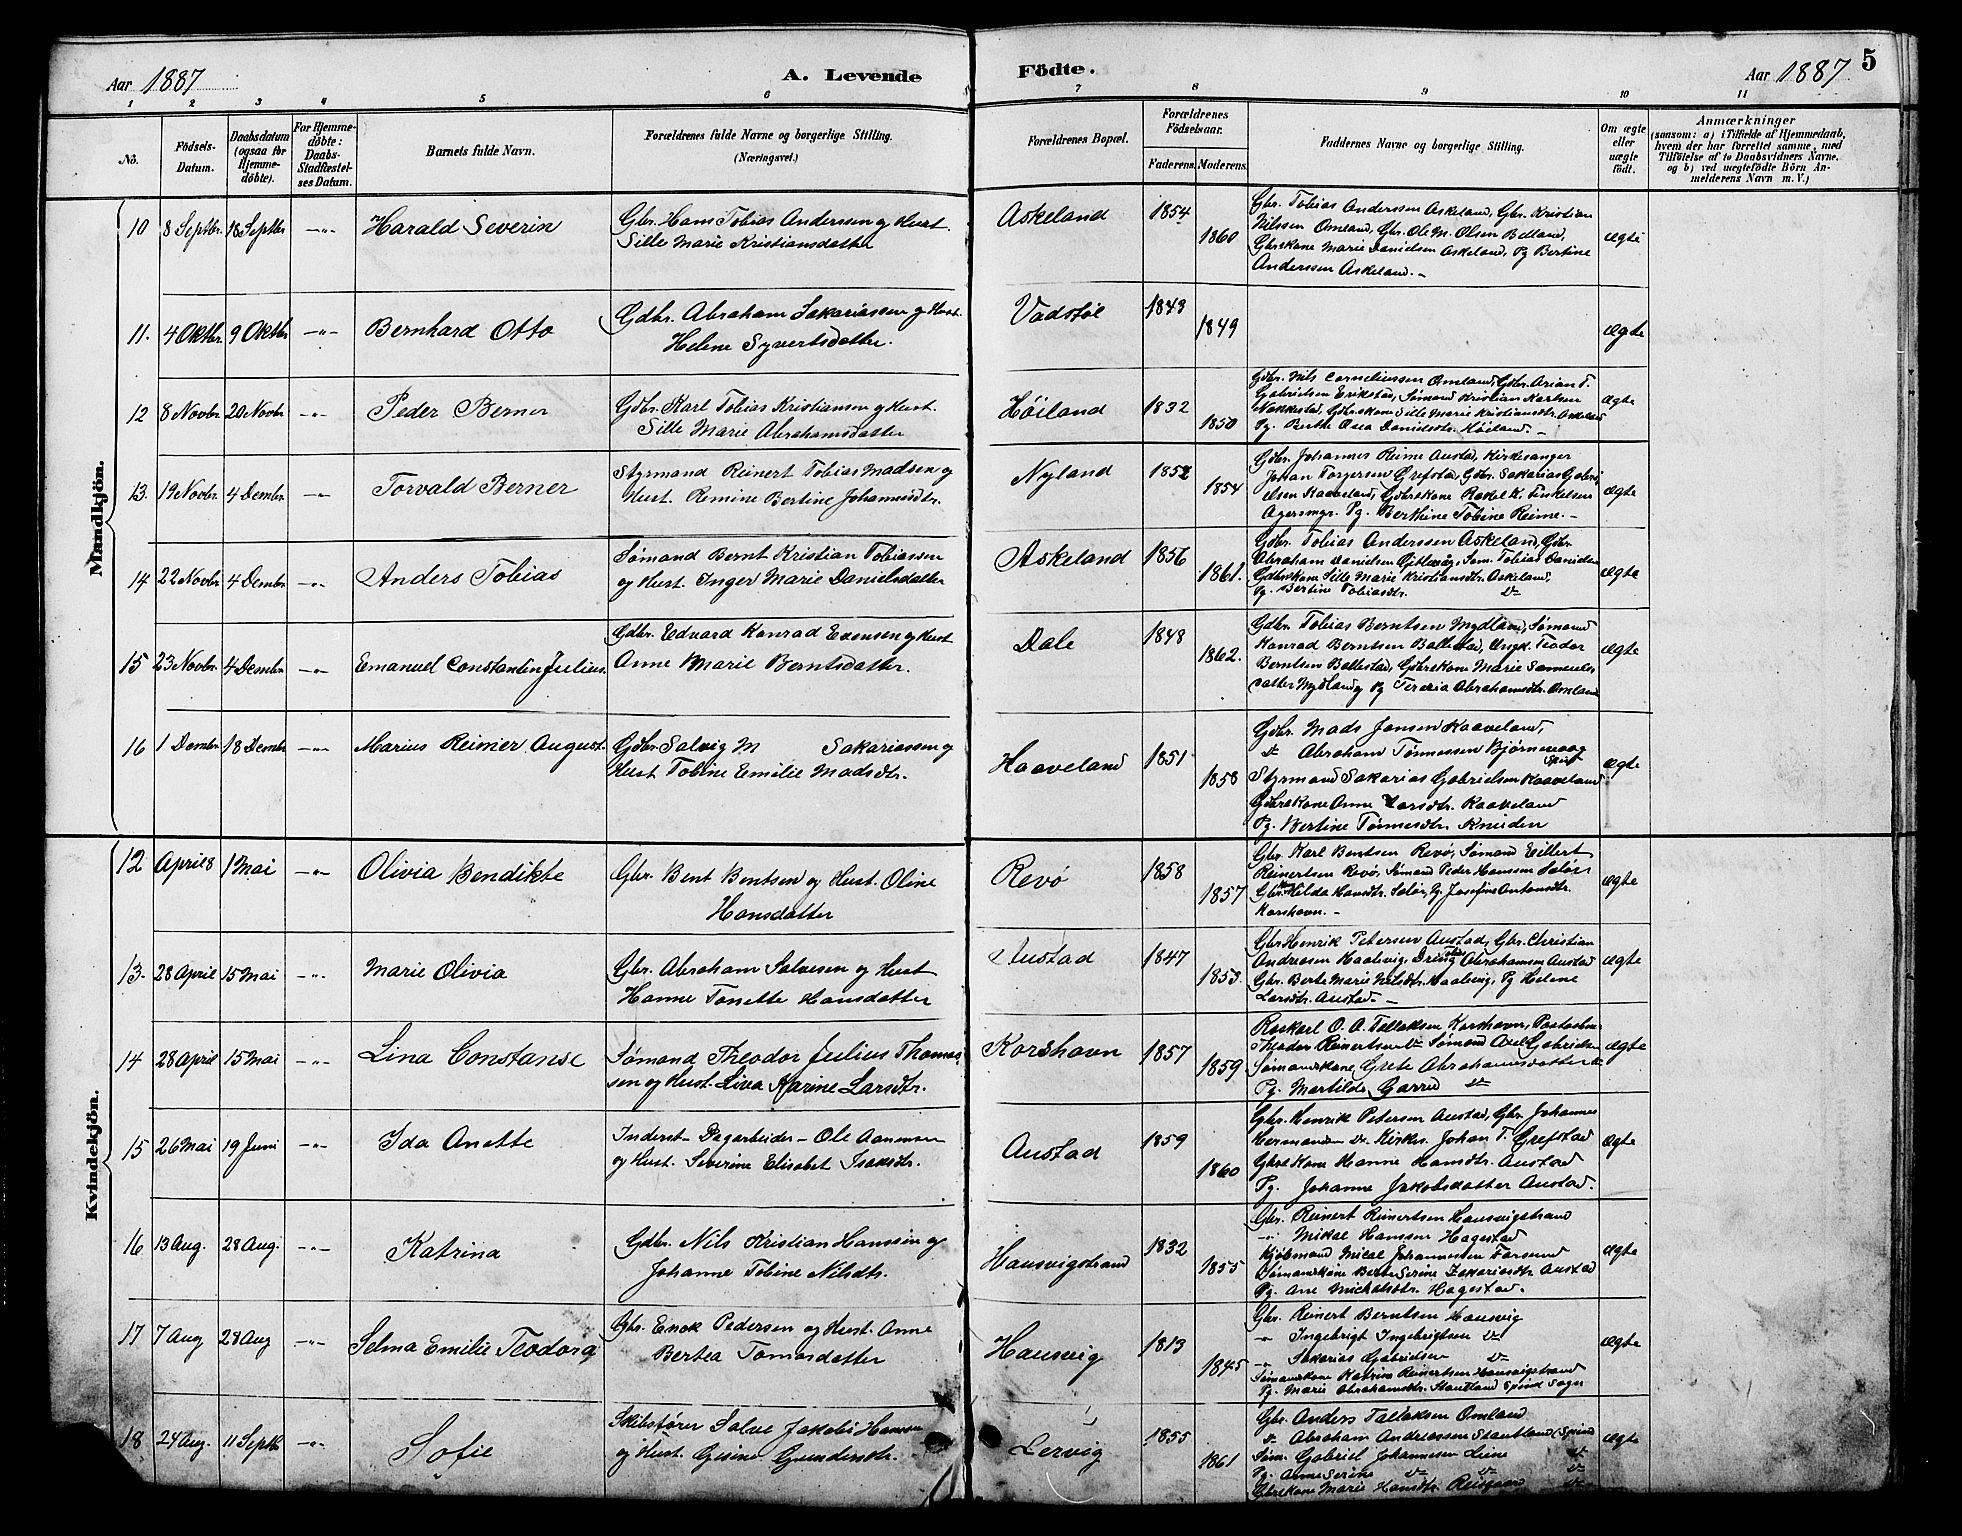 Aar 1887
A. Levende Födte.
Aar 1887
5
1 2 3 4 5 6 7 8 9 10 11
No.
Födsels-Datum.
Daabsdatum (ogsaa for Hjemme-döbte).
For Hjemme-döbte: Daabs-Stadfæstel-ses Datum.
Barnets fulde Navn.
Forældrenes fulde Navne og borgerlige Stilling.
(Næringsvei.)
Forældrenes Bopæl.
Forældrenes Födselsaar.
Faderens. Moderens.
Faddernes Navne og borgerlige Stilling.
Om ægte eller uægte födt.
Anmærkninger
(saasom: a) i Tilfælde af Hjemmedaab,
hvem der har forrettet samme, med
Tilföielse af to Daabsvidners Navne,
og b) ved uægtefödte Börn An-
melderens Navn m. V.)
Mandkjön.
10 8 Septbr. 18 Septbr. -"- Harald Severin
Gbr. Hans Tobias Anderssen og Hust.
Sille Marie Kristiansdatter
Askeland 1854 1860
Gbr. Tobias Anderssen Askeland, Gbr. Kristian
Nilssen Omland, Gbr. Ole M. Olsen Betland,
Gbrskone Marie Danielsen Askeland, Pg Bertine
Anderssen Askeland. -
ægte
11. 4 Oktbr. 9 Oktbr -"- Bernhard Otto
Gdbr. Abraham Sakariassen og Hust.
Helene Syvertsdatter.
Vadstøl 1843 1849
ægte
12 8 Novbr. 20 Novbr -"- Peder Berner
Gdbr. Karl Tobias Kristiansen og Hust.
Sille Marie Abrahamsdatter
Høiland 1832 1850
Gdbr. Nils Corneliussen Omland, Gdbr. Arian T.
Gabrielsen Erikstad, Sømand Kristian Karlsen
Nakkestad, Gdbrskone Sille Marie Kristiansdtr. Askeland
Pg. Berthe Danielsdtr. Høiland. -
ægte
13. 19 Novbr. 4 Dembr. -"- Torvald Berner
Styrmand Reinert Tobias Madsen og
Hust. Remine Bertine Johannesdtr.
Nyland 1852 1854
Gdbr. Johannes Reime Austad, Kirkesanger
Johan Torgersen Grefstad, Gdbr. Sakarias Gabri-
elsen Kaaveland, Gdbrskone Rakel K. Finkelsen
Pg. Berthine Tobine Reime. -
ægte
14 22 Novbr 4 Dembr. -"- Anders Tobias
Sømand Bernt Kristian Tobiassen
og Hust. Inger Marie Danielsdatter
Askeland 1856 1861.
Gdbr. Tobias Anderssen Askeland, Gbr.
Abraham Danielsen Søm. Tobias Danielsen
Gdbrskone Sille Marie Kristiansdtr. Askeland,
Pg. Bertine Tobiasdtr.
ægte
15 23 Novbr 4 Dembr -"- Emanuel Constantin Julius.
Gdbr. Edvard Konrad Evensen og Hust
Anne Marie Berntsdatter.
Dale 1848 1862.
Gdbr. Tobias Berntsen Mydland, Sømand
Konrad Berntsen Ballestad, Ungk. Teodor
Berntsen Ballestad, Gdbrskone Marie Samuels-
datter Mydland og Pg Teresia Abrahamsdtr. Omland
ægte
16 1 Dembr. 18 Dembr -"- Marius Reinier August.
Gdbr. Salvig M Sakariassen og
Hust Tobine Emilie Madsdtr.
Haaveland 1851 1858
Gdbr. Mads Jansen Kaaveland,
Abraham Tønnessen Bjørnevaag
Spind
Styrmand Sakarias Gabrielsen Kaaveland
Gdbrskone Anne Larsdtr. Kaaveland
Pg. Bertine Tønnesdtr. Knuden
ægte
Kvindekjön.
12 April 8 1 Mai -"- Olivia Bendikte
Gbr. Bent Bentsen og Hust. Oline
Hansdatter
Revø 1858 1857
Gbr. Karl Bentsen Revø, Sømand Eilert
Reinertsen Revø, Sømand Peder Hanssen Seløe
Gbr. Hilda Hansdtr. Seløe, Pg. Josefine Antonsdtr.
Korshavn. -
ægte
13. 28 April 15 Mai -"- Marie Olivia
Gbr. Abraham Salvesen og Hust
Hanne Tonette Hansdatter
Austad 1847 1853.
Gbr Henrik Petersen Austad, Gbr. Christian
Andresen Kaalevig, Dreng Abrahamsen Austad
Gbr. Berte Marie Nilsdtr. Kaalevig, Pg Helene
Larsdtr. Austad. -
ægte
14 28 April 15 Mai -"- Lina Constanse
Sømand Theodor Julius Thomas-
sen og Hust. Lina Karine Larsdtr.
Korshavn 1857 1859
O. A. Tallaksen Korshavn,
Theodor Reinertsen Sømand Axel Gabriels.
Sømandskone Grete Abrahamsdatter
Pg. Martilde Garrud
ægte
15 26 Mai 19 Juni -"- Ida Anette
Inderst Dagarbeider - Ole Aanensen
og Hust. Severine Elisabet Isaksdtr.
Austad 1859 1860
Gbr. Henrik Petersen Austad, Gbr. Johannes
Hermansen Kirkes. Johan T. Grefstad
Gbrskone Hanne Hansdtr. Austad
Pg. Johanne Jakobsdatter Austad.
ægte
16 13 Aug. 28 Aug. -"- Katrina
Gdbr. Nils Kristian Hanssen og
Johanne Tobine Nilsdtr.
Hausvigstrand 1832 1855
Gbr. Reinert Reinertsen Hausvigstrand
-"- Mikal Hanssen Hagestad
Kjøbmand Mical Johannessen Farsund
Sømandskone Berte Serine Zakariasdtr Austad
Pg. Ane Michalsdtr. Hagestad.
ægte
17 7 Aug 28 Aug -"- Selma Emilie Teodora
Gbr. Enok Pedersen og Hust. Anne
Bertea Tomasdatter
Hausvig 1813 1845
Gbr. Reinert Berntsen Hausvig
-"- Ingebrigt Ingebrigtsen
-"- Sakarias Gabrielsen
Sømandskone Katrine Reinertsen Hausvigstrand
Pg. Marie Abrahamsdtr. Stautland Spind Sogn
ægte
18 24 Aug. 11 Septbr -"- Sofie
Skibsfører Salve Jakobi Hansen
og Hust. Gisine Gundersdtr.
Lervig 1855 1861
Gbr. Anders Tallaksen Omland
Abraham Andreassen Stautland (Spind
Søm. Gabriel Johannesen Leine
Pg. Anne Serine
Gbrskone Marie Hansdtr.
ægte